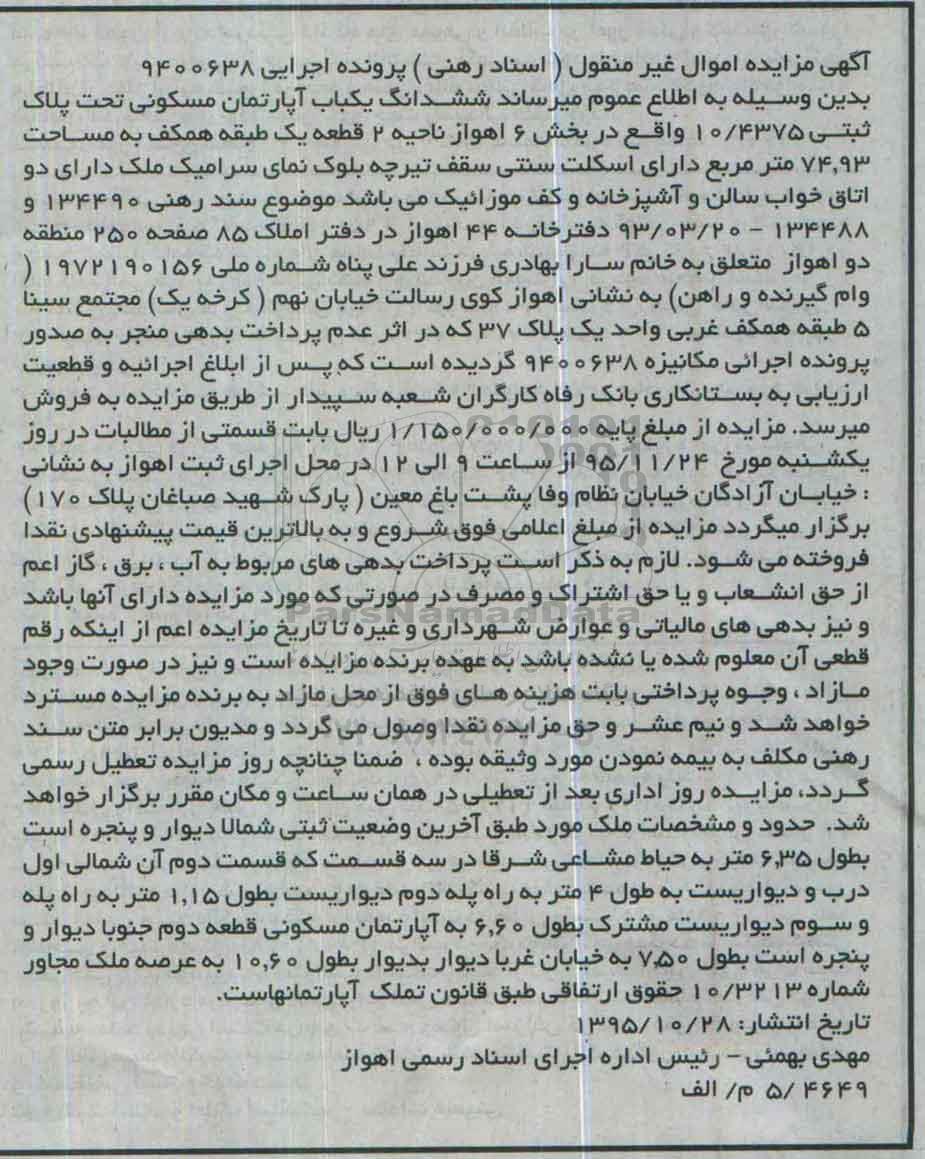 آگهی مزایده اموال غیر منقول ( اسناد رهنی ) پرونده اجرایی ۹۴۰۰۶۳۸
بدین وسیله به اطلاع عموم میرساند ششدانگ یکباب آپارتمان مسکونی تحت پلاک
ثبتی ۱۰/۴۳۷۵ واقع در بخش ۶ اهواز ناحیه ۲ قطعه یک طبقه همکف به مساحت
۷۴,۹۳ متر مربع دارای اسکلت سنتی سقف تیرچه بلوک نمای سرامیک ملک دارای دو
اتاق خواب سالن و آشپزخانه و کف موزائیک می باشد موضوع سند رهنی ۱۳۴۴۹۰ و
۱۳۴۴۸۸ – ۹۳/۰۳/۲۰ دفترخانه ۴۴ اهواز در دفتر املاک ۸۵ صفحه ۲۵۰ منطقه
دو اهواز متعلق به خانم سارا بهادری فرزند علی پناه شماره ملی ۱۹۷۲۱۹۰۱۵۶ (
وام گیرنده و راهن) به نشانی اهواز کوی رسالت خیابان نهم ( کرخه یک) مجتمع سینا
۵ طبقه همکف غربی واحد یک پلاک ۳۷ که در اثر عدم پرداخت بدهی منجر به صدور
پرونده اجرائی مکانیزه ۹۴۰۰۶۳۸ گردیده است که پس از ابلاغ اجرائیه و قطعیت
ارزیابی به بستانکاری بانک رفاه کارگران شعبه سپیدار از طریق مزایده به فروش
میرسد. مزایده از مبلغ پایه ۱/۱۵۰/۰۰۰/۰۰۰ ریال بابت قسمتی از مطالبات در روز
یکشنبه مورخ ۹۵/۱۱/۲۴ از ساعت ۹ الی ۱۲ در محل اجرای ثبت اهواز به نشانی
: خیابان آزادگان خیابان نظام وفا پشت باغ معین ( پارک شهید صباغان پلاک ۱۷۰)
برگزار میگردد مزایده از مبلغ اعلامی فوق شروع و به بالاترین قیمت پیشنهادی نقدا
فروخته می شود. لازم به ذکر است پرداخت بدهی های مربوط به آب ، برق ، گاز اعم
از حق انشعاب و یا حق اشتراک و مصرف در صورتی که مورد مزایده دارای آنها باشد
و نیز بدهی های مالیاتی و عوارض شهرداری و غیره تا تاریخ مزایده اعم از اینکه رقم
قطعی آن معلوم شده یا نشده باشد به عهده برنده مزایده است و نیز در صورت وجود
مازاد ، وجوه پرداختی بابت هزینه های فوق از محل مازاد به برنده مزایده مسترد
خواهد شد و نیم عشر و حق مزایده نقدا وصول می گردد و مدیون برابر متن سند
رهنی مکلف به بیمه نمودن مورد وثیقه بوده ، ضمنا چنانچه روز مزایده تعطیل رسمی
گردد، مزایده روز اداری بعد از تعطیلی در همان ساعت و مکان مقرر برگزار خواهد
شد. حدود و مشخصات ملک مورد طبق آخرین وضعیت ثبتی شمالا دیوار و پنجره است
بطول ۶,۳۵ متر به حیاط مشاعی شرقا در سه قسمت که قسمت دوم آن شمالی اول
درب و دیواریست به طول ۴ متر به راه پله دوم دیواریست بطول ۱,۱۵ متر به راه پله
و سوم دیواریست مشترک بطول ۶,۶۰ به آپارتمان مسکونی قطعه دوم جنوبا دیوار و
پنجره است بطول ۷,۵۰ به خیابان غربا دیوار بدیوار بطول ۱۰,۶۰ به عرصه ملک مجاور
شماره ۱۰/۳۲۱۳ حقوق ارتفاقی طبق قانون تملک آپارتمانهاست.
تاریخ انتشار: ۱۳۹۵/۱۰/۲۸
مهدی بهمئی – رئیس اداره اجرای اسناد رسمی اهواز
۵/ ۴۶۴۹ م/ الف
ParsNamadData